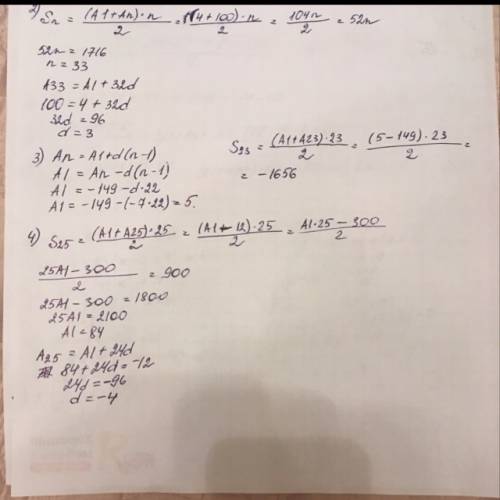 2) Sn = (A1+An)·n / 2 = (4+100)·n / 2 = 104n / 2 = 52n
52n = 1716
n = 33
A33 = A1 + 32d
100 = 4 + 32d
32d = 96
d = 3
3) An = A1 + d(n-1)
A1 = An - d(n-1)
A1 = -149 - d·22
A1 = -149 - (-7·22) = 5.
S23 = (A1+A23)·23 / 2 = (5-149)·23 / 2 =
= -1656
4) S25 = (A1+A25)·25 / 2 = (A1-12)·25 / 2 = A1·25 - 300 / 2
25A1 - 300 / 2 = 900
25A1 - 300 = 1800
25A1 = 2100
A1 = 84
A25 = A1 + 24d
84 + 24d = -12
24d = -96
d = -4